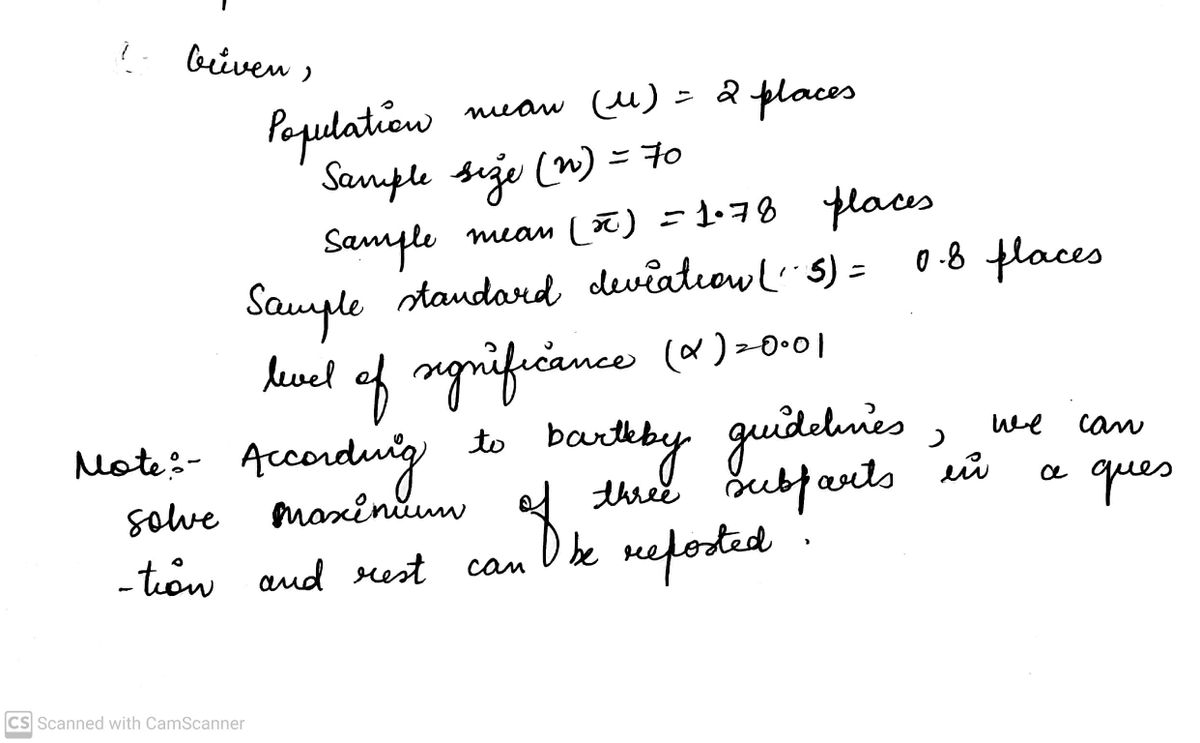 Given,
Population mean (μ) = 2 places
Sample size (n) = 70
Sample mean (x̄) = 1.78 places
Sample standard deviation (S) = 0.8 places
level of significance (α) = 0.01
Note:- According to bartleby guidelines, we can
solve maximum of three subparts in a ques
-tion and rest can be reposted.
CS Scanned with CamScanner